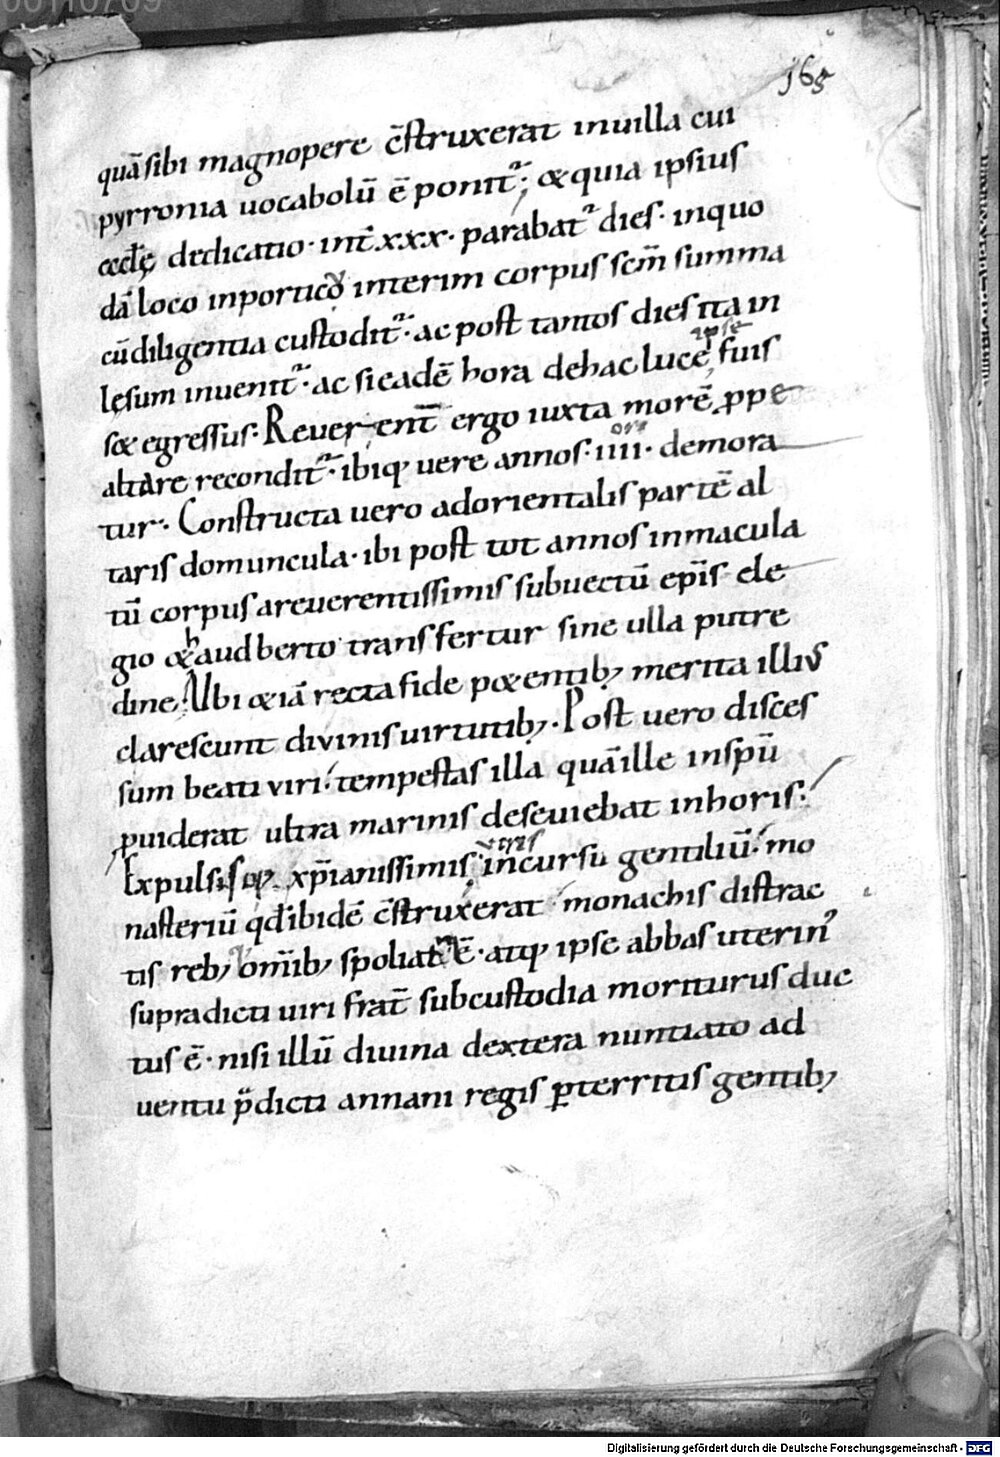 165
quā sibi magnopere c̄struxerat inuilla cui
pyrronia uocabolū ē ponit᷑; & quia ipsius
æcclę dedicatio · int̄ xxx · parabat᷑ dies · inquo
dā loco inporticō interim corpus scm̄ summa
cū diligentia custodit᷑ · ac post tantos dies ita in
lęsum inuenit᷑ · ac si eadē hora dehac luce ipse fuis
s& egressus · Reuerent̄ ergo iuxta morē ꝓpe
altare recondit᷑ · ibiq; uere annos · iiii · demora
tur · Constructa uero adorientalis partē al
taris domuncula · ibi post tot annos inmacula
tū corpus areuerentissimis subuectū ep̄is ele
gio & audberto transfertur sine ulla putre
dine. Ubi & iā recta fide p&entib; merita illius
clarescunt divinis uirtutib; · Post uero disces
sum beati viri · tempestas illa quā ille insp̄u
ꝑuiderat ultra marinis deseuiebat inhoris ·
Expulsisq; xp̄ianissimis uiris incursu gentiliū · mo
nasteriū qd̄ ibidē c̄struxerat monachis distrac
tis reb; om̄ib; spoliat᷑ ē · atq; ipse abbas uterin᷒
supradicti uiri frat̄ subcustodia moriturus duc
tus ē · nisi illū diuina dextera nuntiato ad
uentu p̄dicti annani regis ꝑterritis gentib;
Digitalisierung gefördert durch die Deutsche Forschungsgemeinschaft - DFG